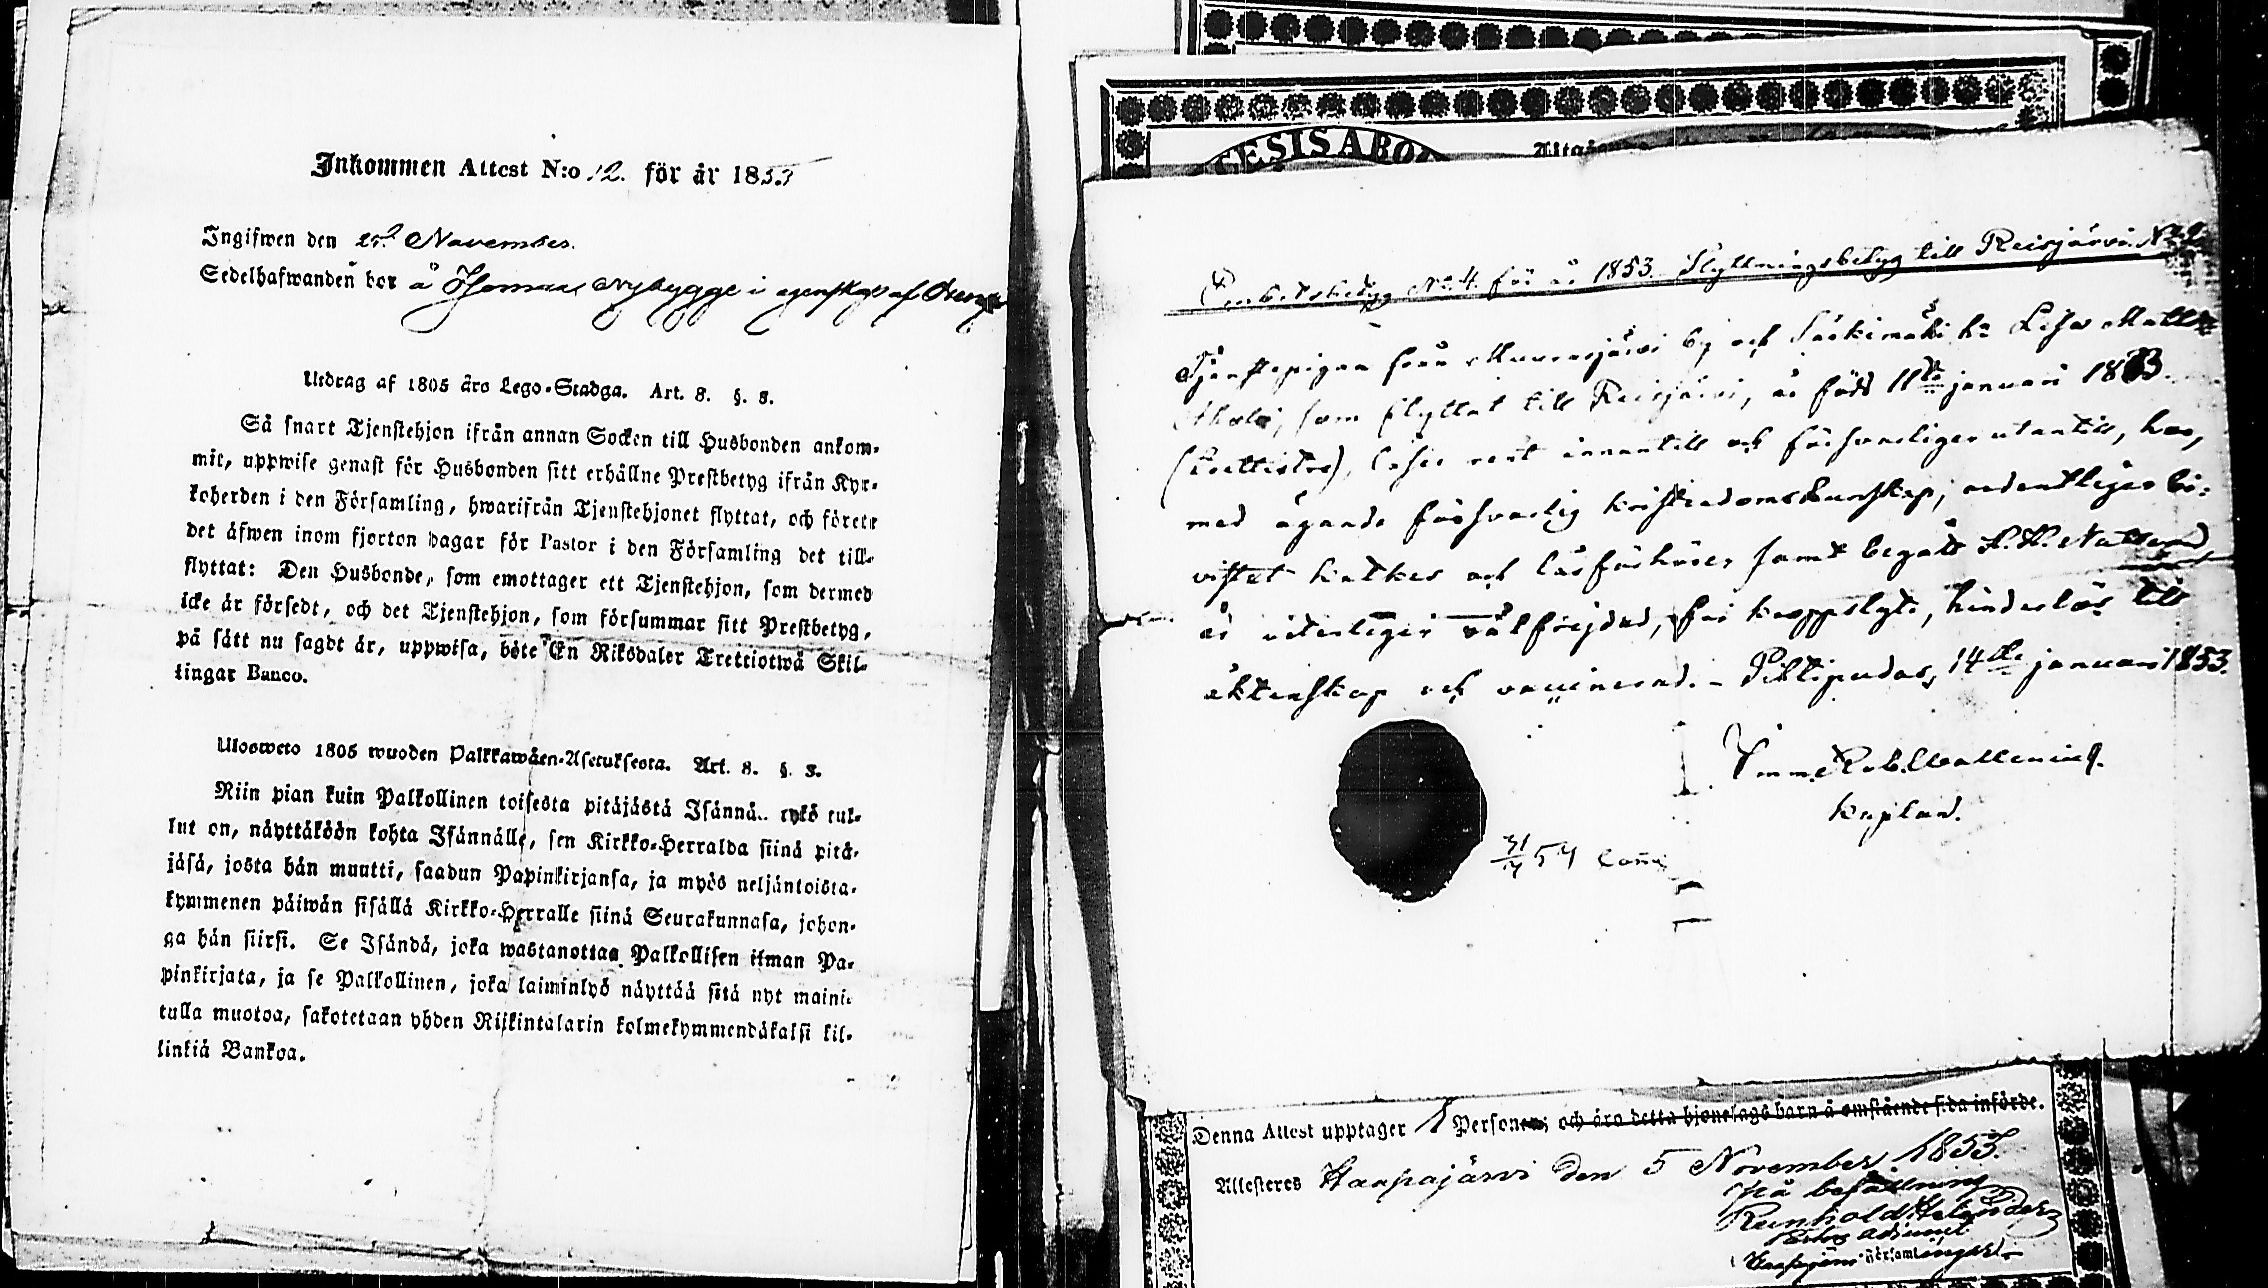 Inkommen Attest N:o 12. för år 1853
Ingifwen den November.
Sedelhafwanden bor å Nybygge i egenskap af
Utdrag af 1805 års Lego-Stadga. Art. 8. §. 8.
Så snart Tjenstehjon ifrån annan Socken till Husbonden ankom-
mit, uppwise genast för Husbonden sitt erhållne Prestbetyg ifrån Kyr-
koherden i den Församling, hwarifrån Tjenstehjonet flyttat, och förete
det äfwen inom fjorton dagar för Pastor i den Församling det till-
flyttat: Den Husbonde, som emottager ett Tjenstehjon, som dermed
icke är försedt, och det Tjenstehjon, som försummar sitt Prestbetyg,
på sätt nu sagdt är, uppwisa, böte En Riksdaler Trettiotwå Skil-
lingar Banco.
Ulosweto 1805 wuoden Palkkawäen-Asetuksesta. Art. 8. §. 8.
Niin pian kuin Palkollinen toisesta pitäjästä Isännä.. tykö tul-
lut on, näyttäköön kohta Isännälle, sen Kirkko-Herralda siinä pitä-
jäsä, josta hän muutti, saadun Papinkirjansa, ja myös neljäntoista-
kymmenen päiwän sisällä Kirkko-Herralle siinä Seurakunnasa, johon-
ga hän siirsi. Se Isändä, joka wastanottaa Palkollisen ilman Pa-
pinkirjata, ja se Palkollinen, joka laiminlyö näyttää sitä nyt maini-
tulla muotoa, sakotetaan yhden Riikintalarin kolmekymmendäkaksi kil-
linkiä Bankoa.
GESIS ABO
Embetsbetyg No 4 för år 1853. Flyttningsbetyg till Reisjärvi No 2
Tjenstepigan från Muurasjärvi by och Säkimäki h: Lisa Matts
som flyttat till Reisjärvi, är född 11te januari 18
läser rent innantill och försvarligen utantill, har,
med ägande försvarlig kristendomskunskap, ordentligen bi-
vistat kyrkor och läsförhörer samt begått H. H. Nattvard,
är välfrejdad, fri hinderlös till
äktenskap och vaccinerad. – Pihtipudas, 14de januari 1853.
Wallenius.
kaplan.
54
Denna Attest upptager 1 Personer; och äro detta hjonelags barn å omstående sida införde.
Attesteres Haapajärvi den 5 November 1853.
på befallning
Reinhold Helander
adjunct
Haapajärvi församlingar